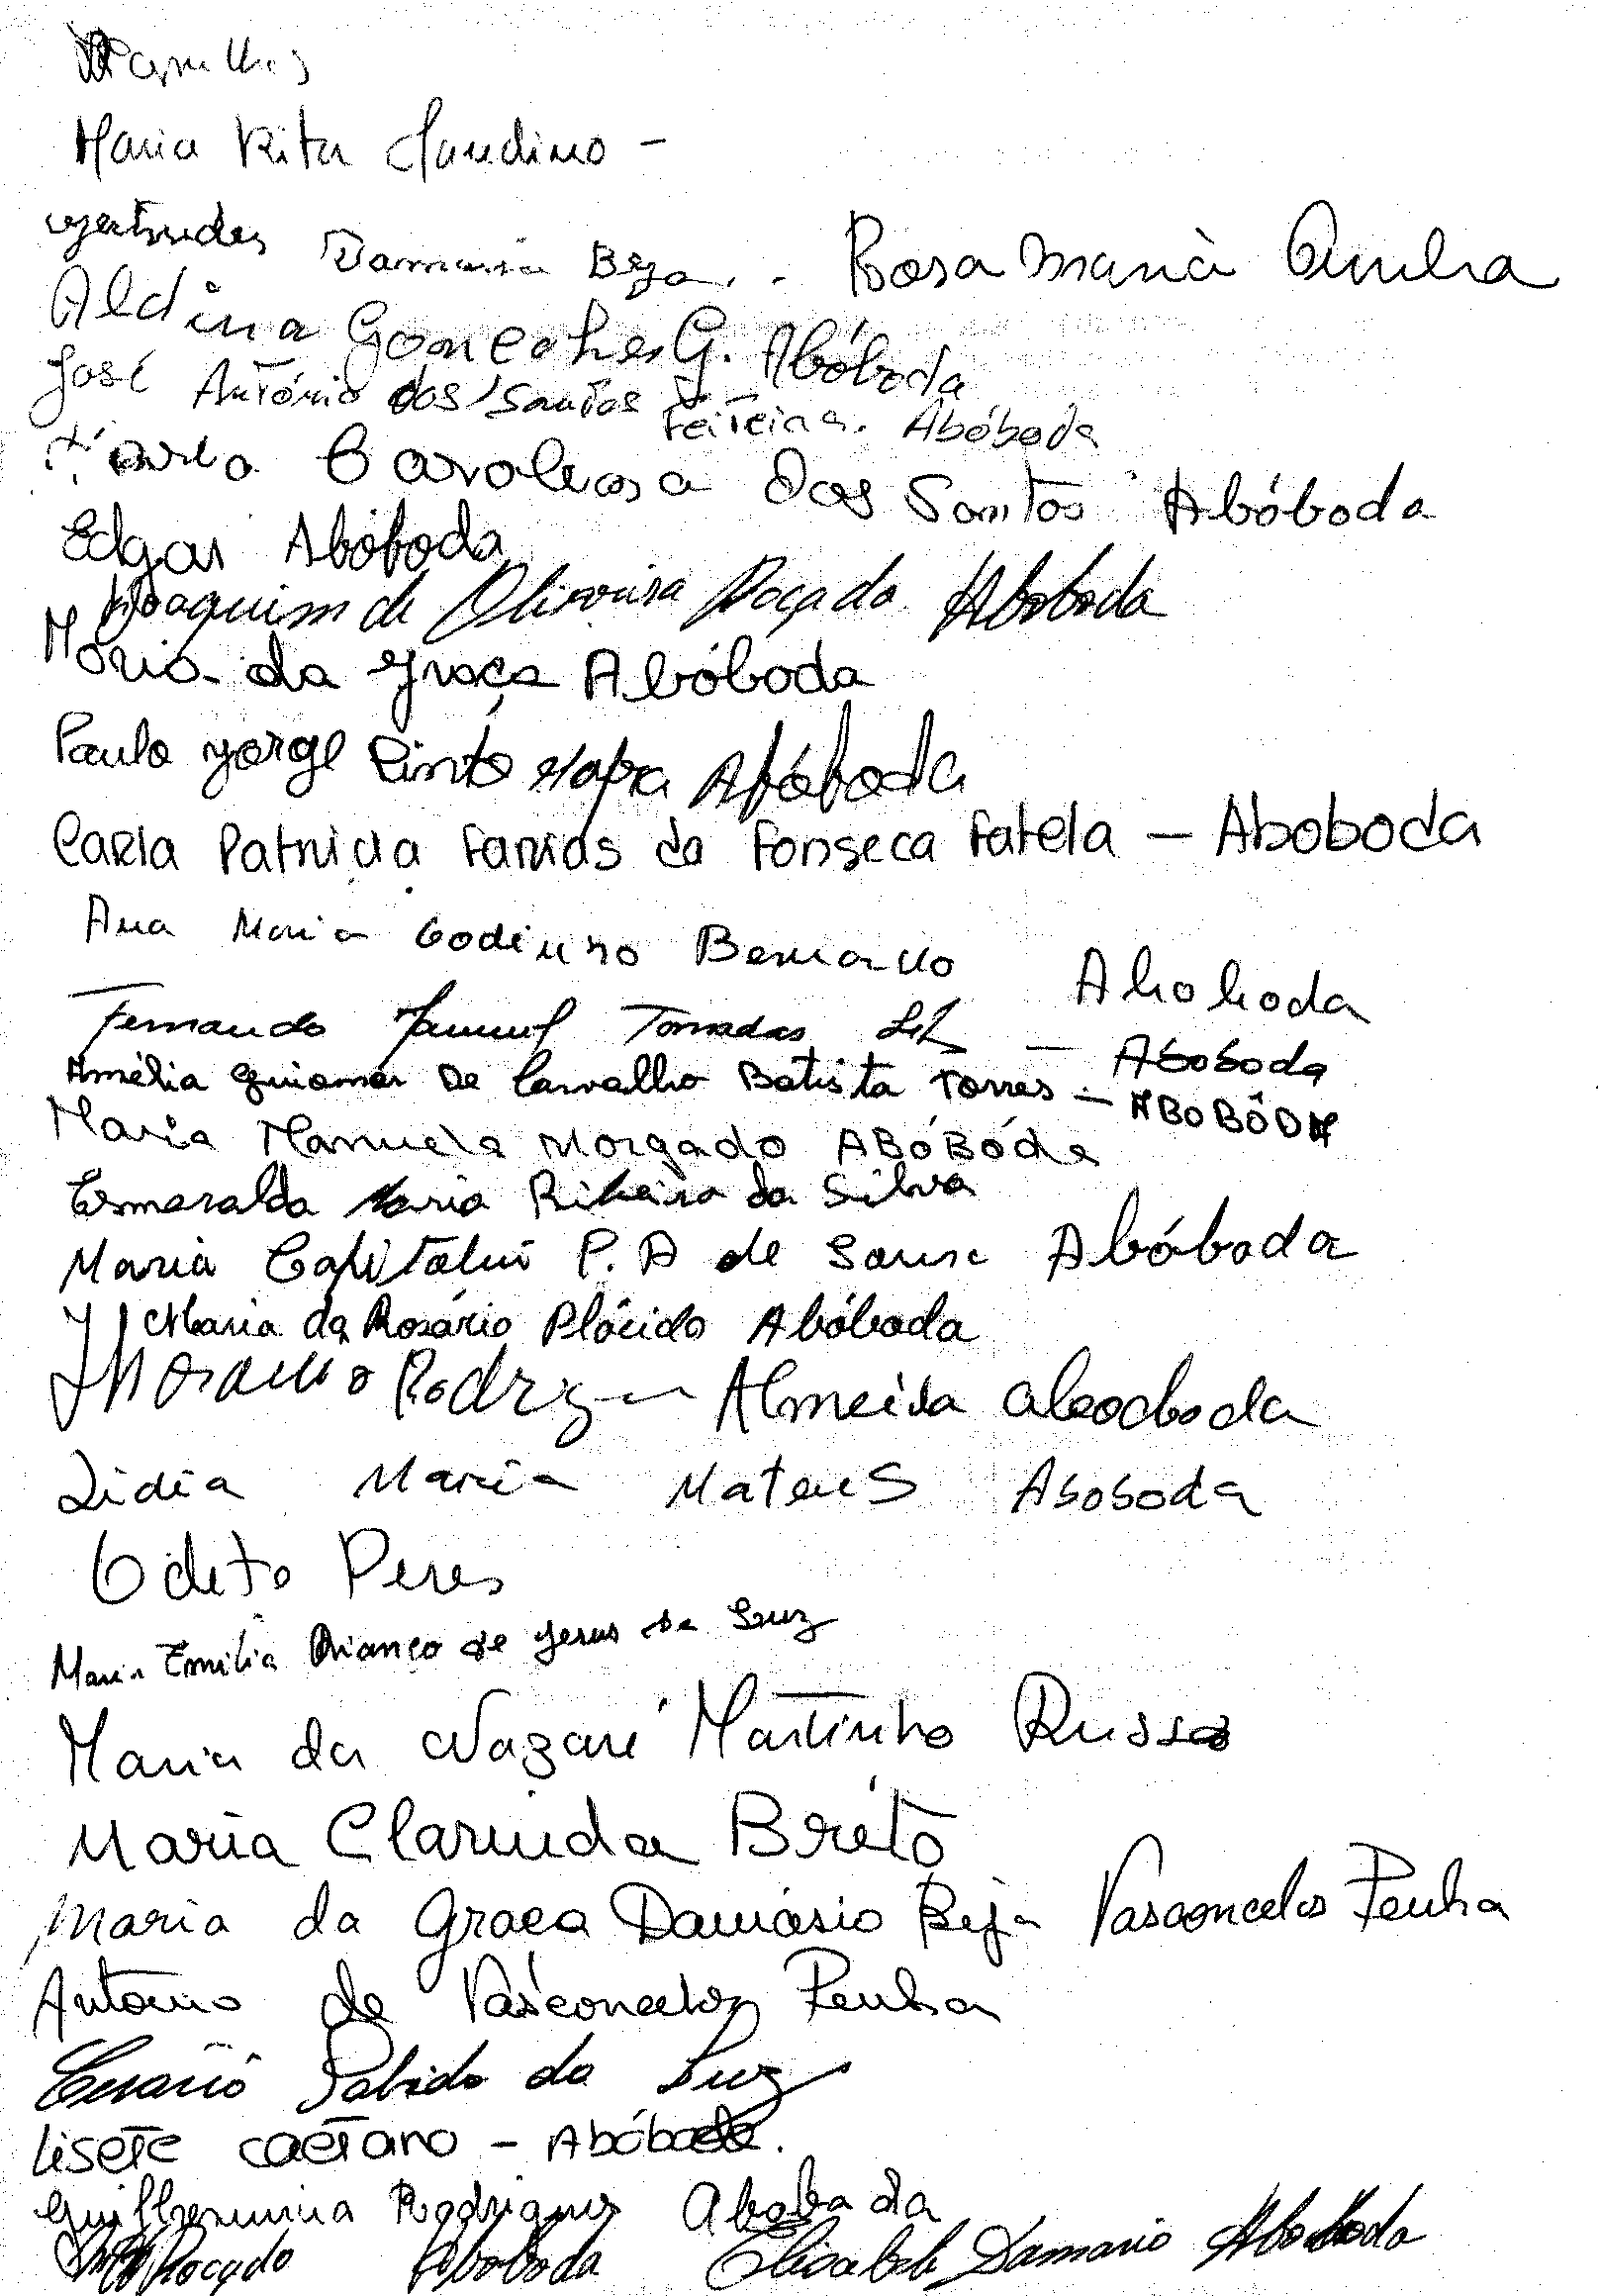 Maria Rita Claudino -
Gertrudes Damasia Beja. - Rosa Maria Cunha
Aldina Gonçalves G. Abóboda
José António dos Santos Ferreira. Abóboda
Maria dos Santos Abóboda
Edgar Abóboda
Joaquim de Oliveira Roçado Aboboda
Maria da Graça Abóboda
Paulo Jorge Pinto Abóboda
Carla Patricia Farias da Fonseca Fatela - Aboboda
Ana Maria Godinho Bernardo Aboboda
Fernando Manuel Torradas - Aboboda
Amélia Guiomar De Carvalho Batista Torres - ABOBÔDA
Maria Manuela Morgado ABÓBÓda
Esmeralda Maria Ribeiro da Silva
Maria P. A de Sousa Abóboda
Maria do Rosário Plácido Abóboda
Rodrigues Almeida aboboda
Lidia Maria Mateus Aboboda
Odete Peres
Maria Emilia de Jesus da Luz
Maria da Nazaré Martinho Russo
Maria Clarinda Brito
Maria da Graça Damásio Beja Vasconcelos Penha
António de Vasconcelos Penha
Cesário da Luz
Lisete Caetano - Abóboda.
Guilhermina Rodrigues Aboboda
Roçado Aboboda Elisabete Damasio Aboboda